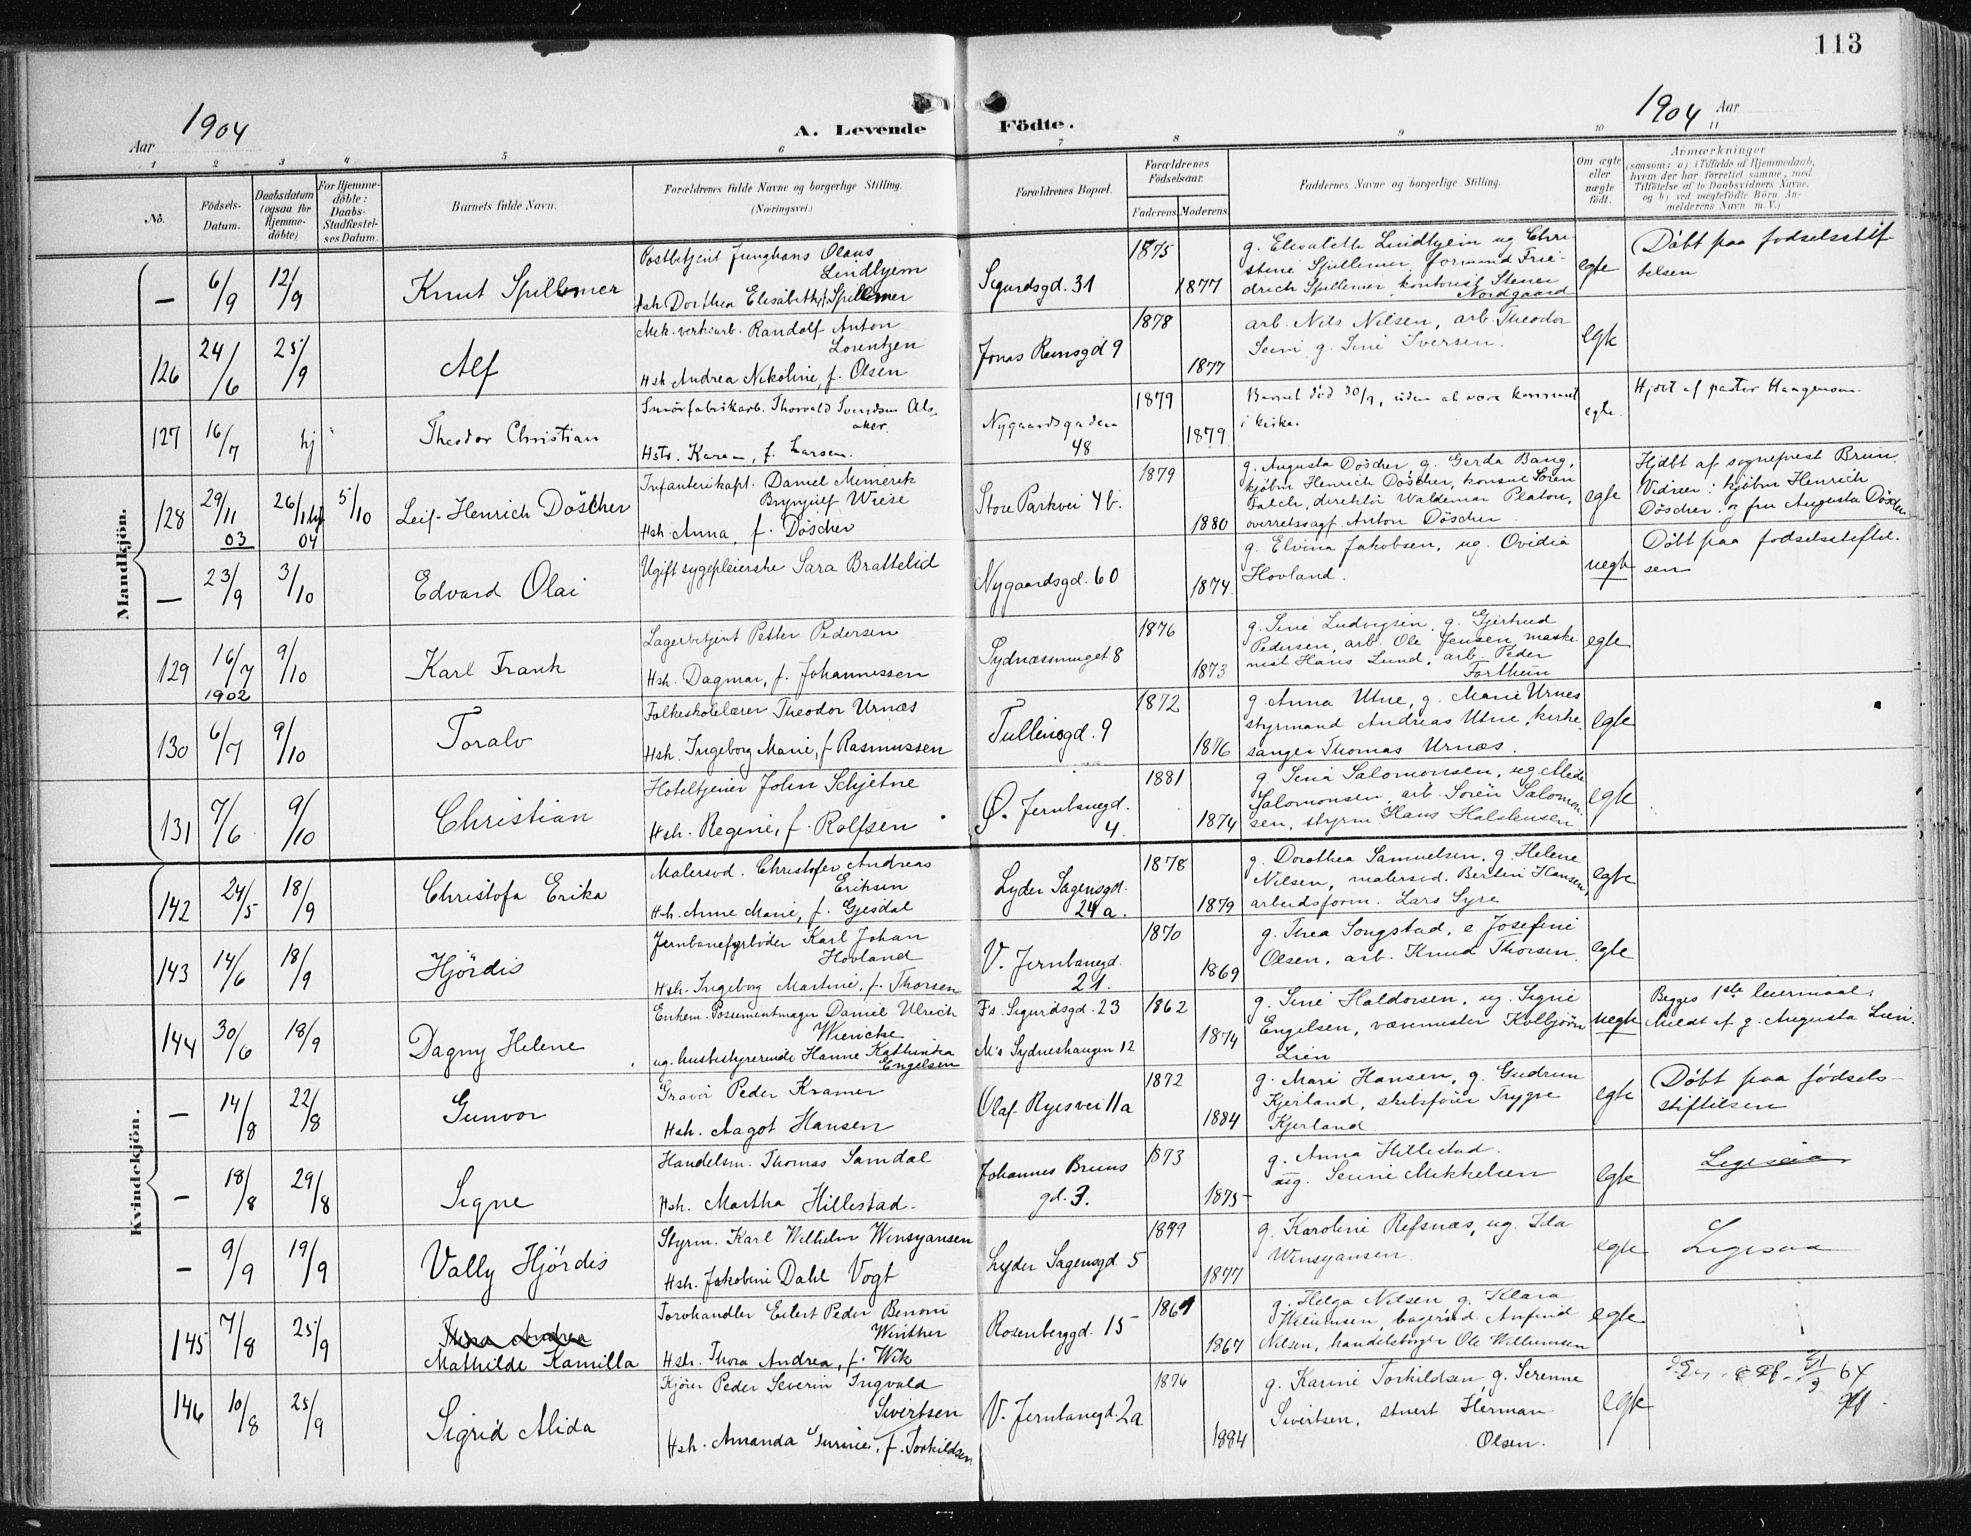 113
Aar 1904
A. Levende Födte.
1904 Aar
1 2 3 4 5 6 7 8 9 10 11
No.
Födsels-Datum.
Daabsdatum (ogsaa for Hjemme-döbte)
For Hjemme-döbte: Daabs-Stadfæstel-ses Datum.
Barnets fulde Navn.
Forældrenes fulde Navne og borgerlige Stilling. (Næringsvei.)
Forældrenes Bopæl.
Forældrenes Födselsaar.
Faderens. Moderens.
Faddernes Navne og borgerlige Stilling.
Om ægte eller uægte födt.
Anmærkninger
(saasom: a) i Tilfælde af Hjemmedaab,
hvem der har forrettet samme, med
Tilföielse af to Daabsvidners Navne,
og b) ved uægtefödte Börn An-
melderens Navn m. V.)
Mandkjön.
— 6/9 12/9 Knut Spillemer
Postbetjent Junghans Olaus
Lindhjem
Hsh Dorthea Elisabeth f. Spillemer
Sigurdsgd. 31
1875 1877
g. Elisabeth Lindhjem ug Chri-
stine Spillemer, formand Frie-
drich Spillemer, kontorist Stener
Nordgaard
egte
Döbt paa fodselsstif-
telsen
126 24/6 25/9 Alf
Mek. verksarb. Randolf Anton
Lorentzen
Hsh Andrea Nikoline, f. Olsen
Jonas Reinsgd 9
1878 1877
arb. Nils Nilsen, arb. Theodor
Seim g. Sine Iversen.
egte
127 16/7 hj Theodor Christian
Smörfabrikarb. Thorvald Svendsen Als-
aker.
Hstr. Karen, f. Larsen.
Nygaardsgaden
48
1879 1879
Barnet död 30/9, uden at være kommet
i kirke.
egte.
Hjdøt af pastor Haagensen.
128 29/11 03 26/1 hj 04 5/10 Leif-Henrich Döscher
Infanterikapt. Daniel Mimerik
Brynjulf Wiese
Hsh. Anna, f. Döscher
Store Parkvei 4 b.
1879 1880
g. Augusta Döscher, g. Gerda Bang,
kjöbm Henrich Döscher, konsul Sören
Falch, direktör Waldemar Platou,
overretssagf. Anton Döscher.
egte
Hjdbt af sognepræst Bruun.
Vidner: kjöbm Henrich
Döscher og fru Augusta Döscher
— 23/9 3/10 Edvard Olai
Ugift sygepleierske Sara Brattelid
Nygaardsgd. 60
1874.
g. Elvina Jakobsen, ug. Ovidia
Hovland.
uegte
Döbt paa fodselsstiftel-
sen
129 16/7 1902 9/10 Karl Frank
Lagerbetjent Petter Pedersen
Hsh. Dagmar, f. Johannessen
Sydnæssmuget 8
1876 1873
g. Sine Ludvigsen, g. Gjertrud
Pedersen, arb. Ole Jensen, maski-
nist Hans Lund, arb. Peder
Fortheim
egte
130 6/7 9/10 Toralv
Folkeskolelærer Theodor Urnæs
Hsh. Ingeborg Marie, f Rasmussen
Tullinsgd. 9
1872 1876
g. Anna Utne, g. Marie Urnes
styrmand Andreas Utne, kirke-
sanger Thomas Urnæs.
egte
131 7/6 9/10 Christian
Hoteltjener John Schjetne
Hsh. Regine, f. Rolfsen
Ø. Jernbanegd.
4.
1881 1874
g. Sina Salomonsen, ug. Mide
Salomonsen, arb. Sören Salomon-
sen, styrm Hans Halstensen
egte
Kvindekjön.
142 24/5 18/9 Christofa Erika
Malersvd. Christofer Andreas
Eriksen
Hsh. Anne Marie, f. Gjesdal
Lyder Sagensgd.
24 a.
1878 1879
g. Dorothea Samuelsen, g. Helene
Nilsen, malersvd. Bertin Hansen,
arbeidsform. Lars Syre
egte
143 14/6 18/9 Hjördis
Jernbanefyrböder Karl Johan
Hovland
Hsh. Ingeborg Martine, f. Thorsen
V. Jernbanegd.
21.
1870 1869
g. Thea Songstad, e Josefine
Olsen, arb. Knud Thorsen.
egte
144 30/6 18/9 Dagny Helene
Enkem. Possementmager Daniel Ulrich
Wencke
ug. husbestyrerinde Hanne Kathinka
Engelsen
Fs. Sigurdsgd. 23
M's Sydneshaugen 12
1862 1874
g. Sine Haldorsen, ug. Signe
Engelsen, værnmester Kolbjörn
Lien
uegte
Begges 1ste leiermaal.
Meldt af g. Augusta Lien.
— 14/8 22/8 Gunvor
Gravör Peder Kramer
Hsh. Aagot Hansen
Olaf Ryesvei 11a
1872 1884
g. Mari Hansen, g. Gudrun
Kjerland, skibsförer Trygve
Kjerland
egte
Döbt paa födsels-
stiftelsen
— 18/8 29/8 Signe
Handelsm. Thomas Samdal
Hsh. Martha Hillestad.
Johannes Bruuns
gd. 3.
1873 1875
g. Anna Hillestad.
ug. Senne Mikkelsen
egte
Ligesaa
— 9/9 19/9 Vally Hjördis
Styrm. Karl Wilhelm Winsyansen
Hsh. Jakobine Dahl Vogt
Lyder Sagensgd 5
1877 1877
g. Karoline Refsnæs, ug. Ida
Winsyansen.
egte
Ligesaa
145 7/8 25/9 Thora Andrea
Mathilde Kamilla
Torvhandler Eilert Peder Benoni
Winther
Hsh. Thora Andrea, f. Wik
Rosenberggd. 15
1861 1867
g. Helga Nilsen g. Klara
Willumsen, bagersvd Anfind
Nilsen, handelsborger Ole Willumsen
egte
146 10/8 25/9 Sigrid Alida
Kjörer Peder Severin Ingvald
Sivertsen
Hsh. Amanda Gurine, f. Torkildsen
V. Jernbanegd. 2a
1876 1884
g. Karine Torkildsen, g. Serenne
Sivertsen, stuert Herman
Olsen.
egte
64